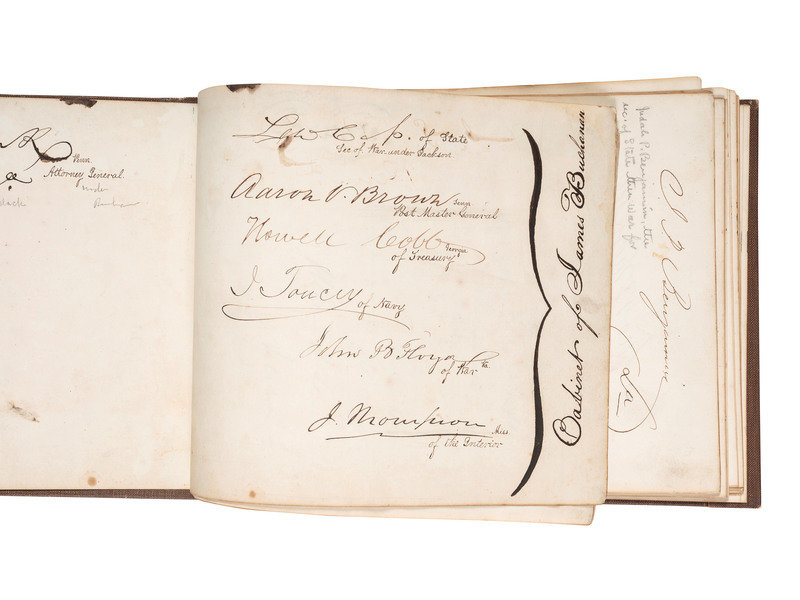 Penn
Attorney General
under
Lew Cass. of State
Sec of War under Jackson.
Aaron V. Brown Tenn
Post Master General
Howell Cobb Georgia
of Treasury
I Toucey of Navy
John B Floyd Va.
of War
J. Thompson Miss.
of the Interior
Cabinet of James Buchanan
Judah P. Benjamin the
sec. of State then War for
J. P. Benjamin
La